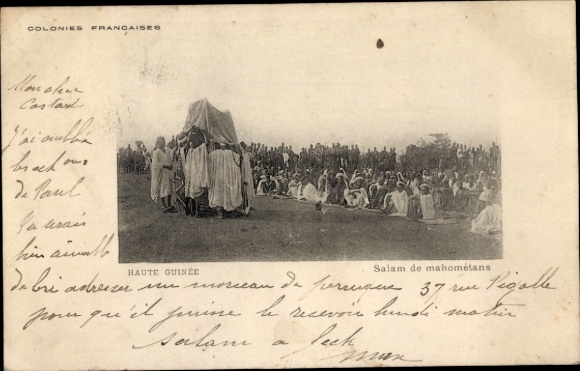 COLONIES FRANÇAISES
Mon cher
Castard
J'ai oublié
de Paul
Tu serais
bien aimable
HAUTE GUINÉE
Salam de mahométans
de lui adresser un morceau de perruque 37 rue Pigalle
pour qu'il puisse le recevoir lundi matin
salam a
Max